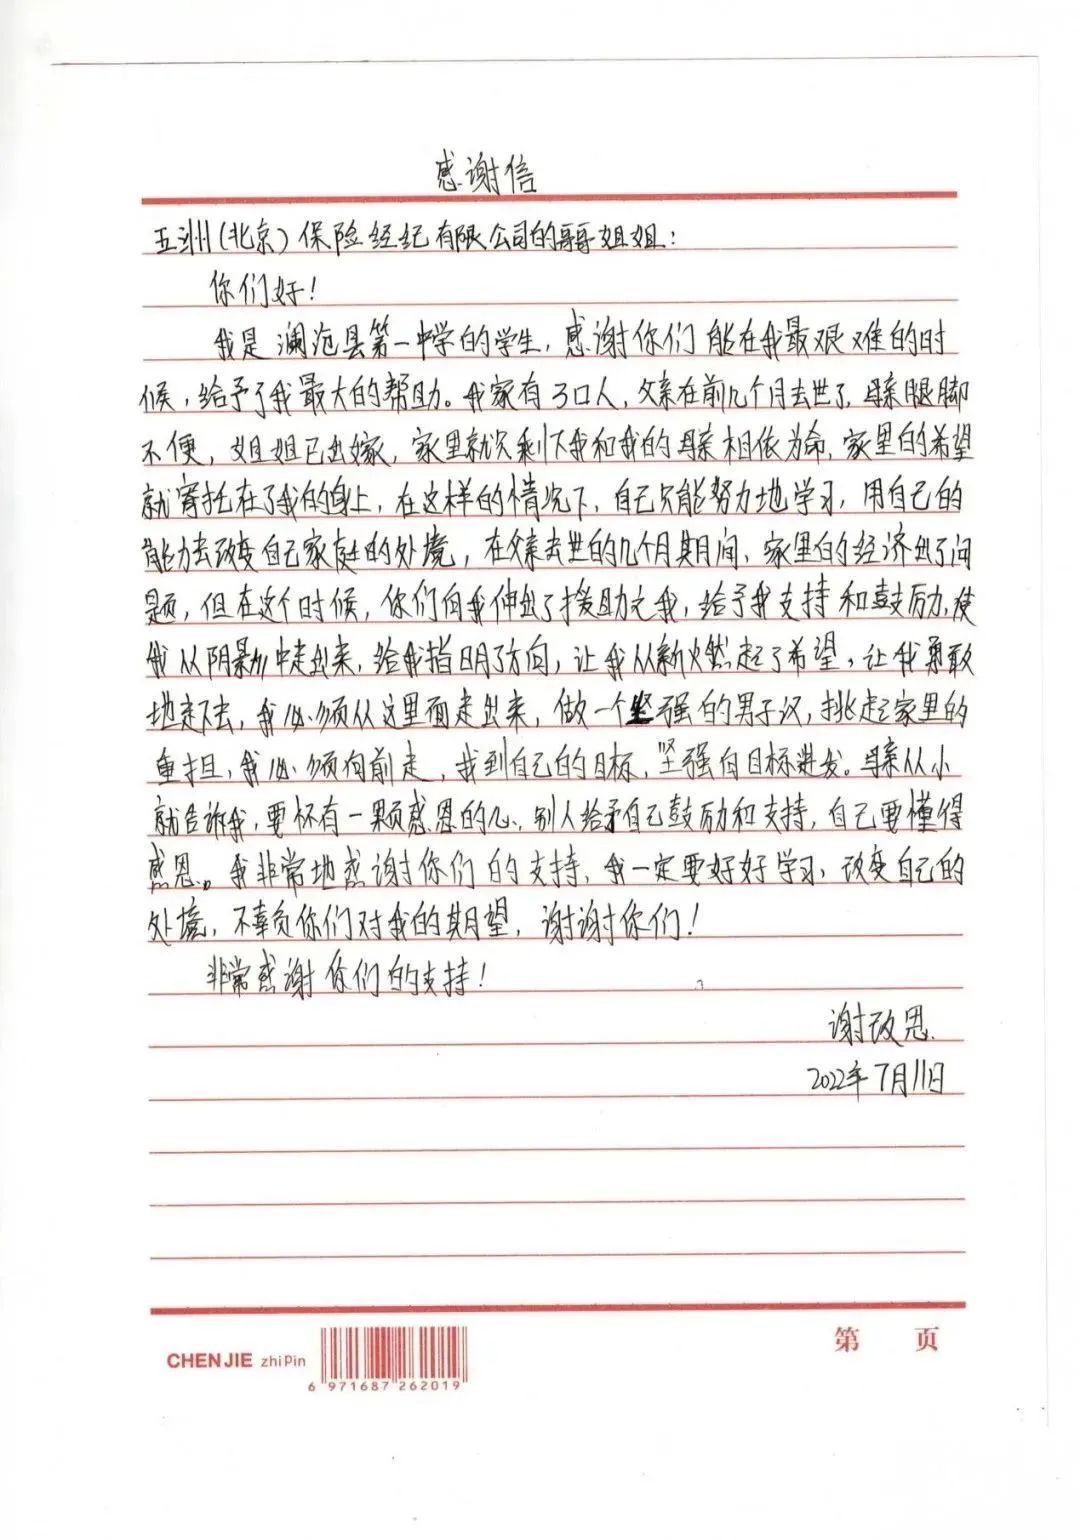 感谢信
五洲(北京)保险经纪有限公司的哥哥姐姐:
你们好!
我是澜沧县第一中学的学生,感谢你们能在我最艰难的时
候,给予了我最大的帮助。我家有3口人,父亲在前几个月去世了,母亲腿脚
不便,姐姐已出嫁,家里就只剩下我和我的母亲相依为命,家里的希望
就寄托在了我的身上,在这样的情况下,自己只能努力地学习,用自己的
能力去改变自己家庭的处境,在父亲去世的几个月期间,家里的经济出了问
题,但在这个时候,你们向我伸出了援助之我,给予我支持和鼓励,使
我从阴影中走出来,给我指明了方向,让我从新燃起了希望,让我勇敢
地走下去,我必须从这里面走出来,做一个坚强的男子汉,挑起家里的
重担,我必须向前走,找到自己的目标,坚强向目标进发。母亲从小
就告诉我,要怀有一颗感恩的心,别人给予自己鼓励和支持,自己要懂得
感恩。我非常地感谢你们的支持,我一定要好好学习,改变自己的
处境,不辜负你们对我的期望,谢谢你们!
非常感谢你们的支持!
谢改恩
2022年7月11日
CHENJIE zhiPin
6 971687 262019
第 页